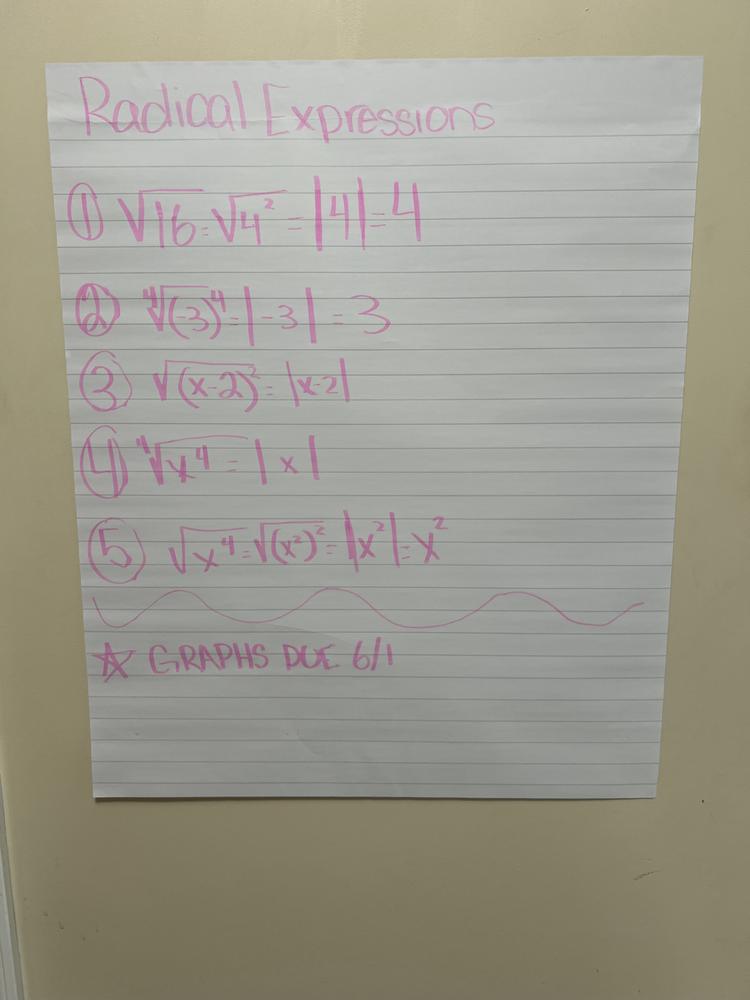 Radical Expressions
① √16 = √4² = |4| = 4
② ∜(-3)⁴ = |-3| = 3
③ √(x-2)² = |x-2|
④ ∜x⁴ = |x|
⑤ √x⁴ = √(x²)² = |x²| = x²
☆ GRAPHS DUE 6/1